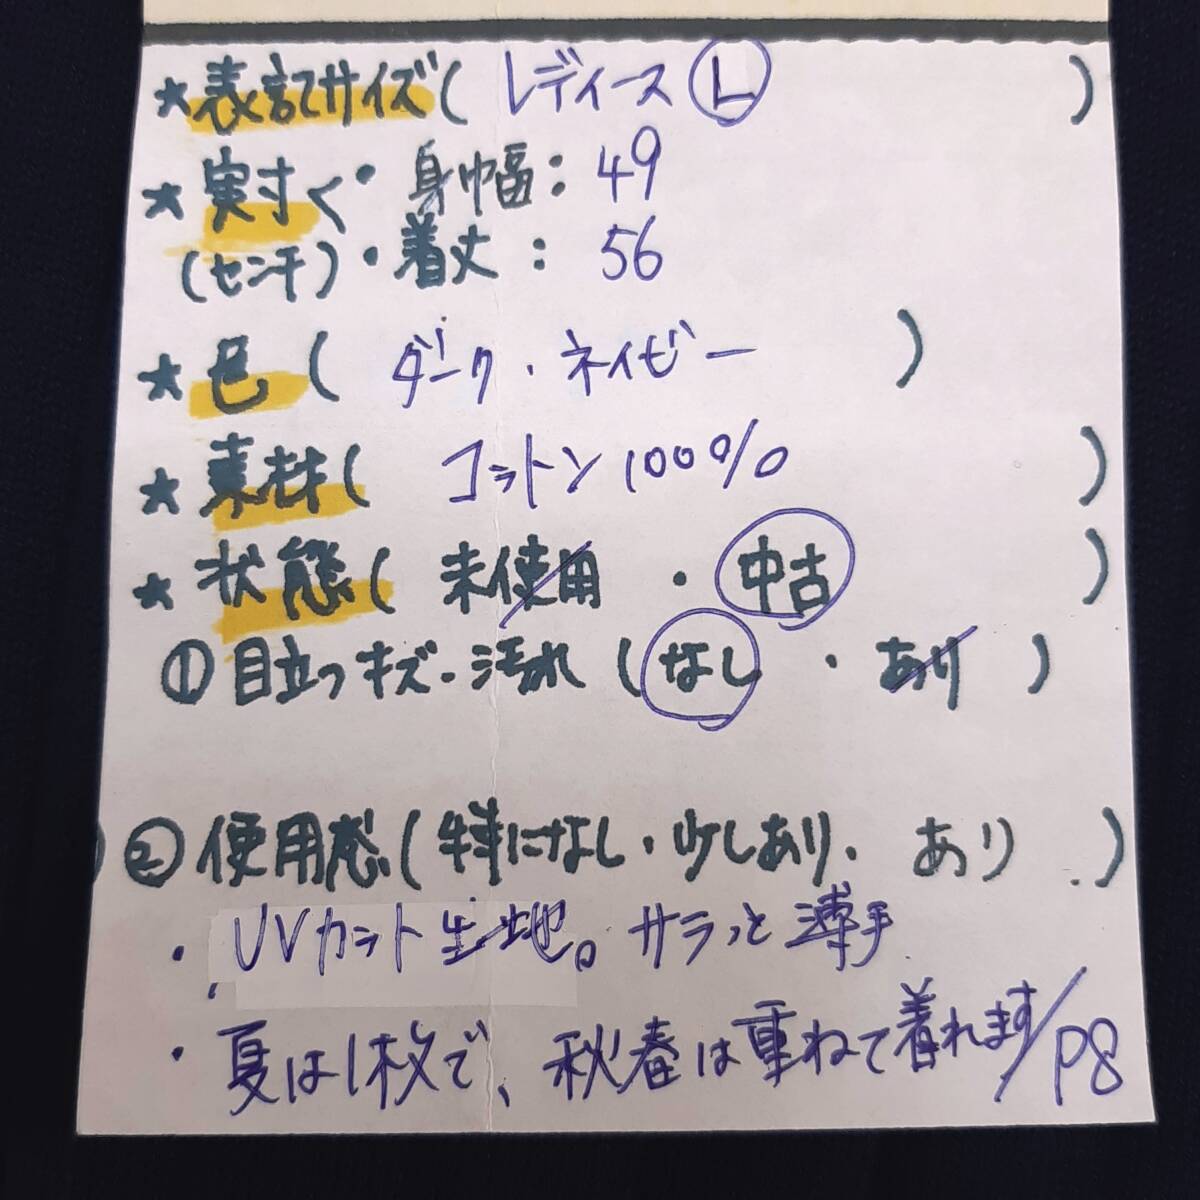 ★表記サイズ( レディース Ⓛ )
★実寸く・身幅: 49
(センチ)・着丈: 56
★色( ダーク・ネイビー )
★素材( コットン100% )
★状態( 未使用 ・ 中古 )
①目立つキズ・汚れ ( なし ・ あり )
②使用感(特になし・少しあり・ あり )
・UVカット生地。サラっと薄手
・夏は1枚で、秋春は重ねて着れます/P8